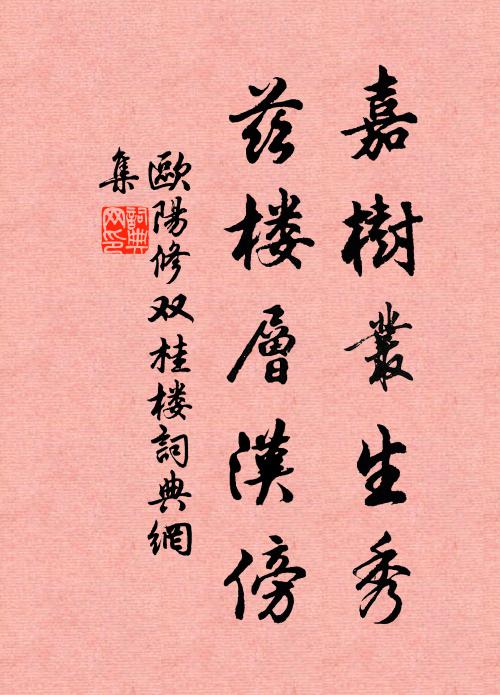 嘉樹叢生秀
茲楼層漢傍
歐陽修双桂楼詞典網
集
詞典網印